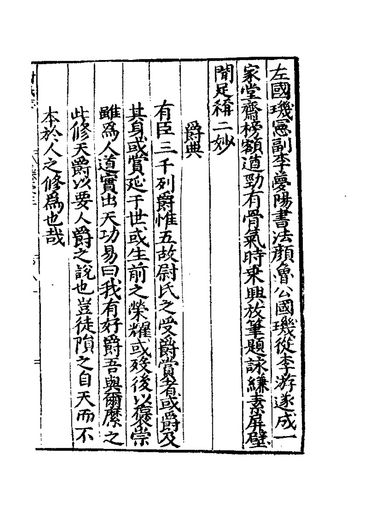 左國璣憲副李夢陽書法顏魯公國璣從李游遂成一
家堂齋榜額遒勁有骨氣時乘興放筆題詠縑素屏壁
間足稱二妙
爵典
有臣三千列爵惟五故尉氏之受爵賞者或爵及
其身或賞延于世或生前之榮耀或歿後以褒崇
雖為人道實出天功易曰我有好爵吾與爾縻之
此修天爵以要人爵之說也豈徒隕之自天而不
本於人之修為也哉